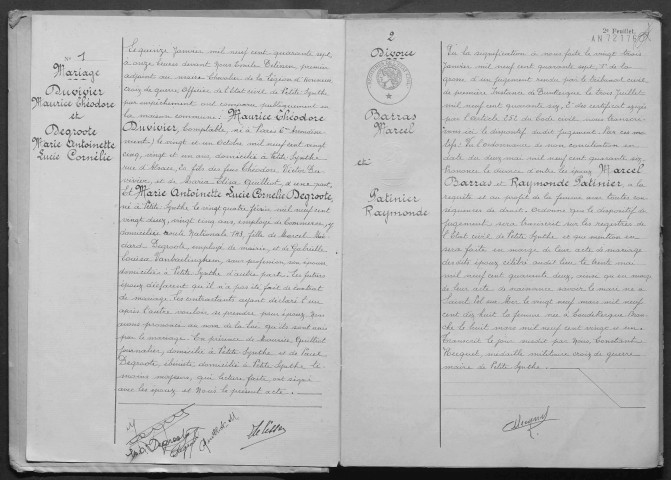 N° 1
Mariage
Duvivier
Maurice Théodore
et
Degroote
Marie Antoinette
Lucie Cornélie
Le quinze Janvier mil neuf cent quarante sept
à onze heures devant Nous Emile Delierse, premier
adjoint au maire, Chevalier de la Légion d'honneur
croix de guerre, Officier de l'état civil de Petite Synthe
par empêchement ont comparu publiquement en
la maison commune: Maurice Théodore
Duvivier, Comptable, né à Paris
le vingt et un Octobre mil neuf cent vingt
cinq, vingt et un ans, domicilié à Petite Synthe
rue d'Alsace, Et fils des feus Théodore Victor Du-
vivier, et de Quilliot, d'une part,
Et Marie Antoinette Lucie Cornélie Degroote,
née à Petite Synthe le vingt quatre février mil neuf cent
vingt deux, vingt cinq ans, employée de commerce, y
domiciliée route Nationale, fille de Marcel
Degroote, employé de mairie, et de Gabrielle
Louise sans profession, son épouse
domiciliés à Petite Synthe d'autre part. Les futurs
époux déclarent qu'il n'a pas été fait de contrat
de mariage. Les contractants ayant déclaré l'un
après l'autre vouloir se prendre pour époux, Nous
avons prononcé au nom de la loi qu'ils sont unis
par le mariage. En présence de Quilliot
Journalier, domicilié à Petite Synthe et de
Degroote, domiciliée à Petite Synthe té-
moins majeurs, qui, lecture faite ont signé
avec les époux et Nous le présent acte.
2e Feuillet
2
Divorce
Barras
Marcel
et
Patinier
Raymonde
Vu la signification à nous faite le vingt trois
Janvier mil neuf cent quarante sept, 1° de la
grosse d'un jugement rendu par le tribunal civil
de première Instance de Dunkerque le trois Juillet
mil neuf cent quarante six, 2° des certificats exigés
par l'article 252 du Code civil, nous transcri-
vons ici le dispositif dudit jugement. Par ces mo-
tifs. Vu l'ordonnance de non conciliation en
date du deux mai mil neuf cent quarante six,
Prononce le divorce d'entre les époux Marcel
Barras et Raymonde Patinier, à la
requête et au profit de la femme avec toutes con-
séquences de droit. Ordonne que le dispositif du
jugement sera transcrit sur les registres de
l'Etat civil de Petite Synthe et que mention en
sera faite en marge de leur acte de mariage
desdits époux célébré audit lieu le trente mai
mil neuf cent quarante deux, ainsi qu'en marge
de leur acte de naissance savoir le mari né à
Saint Pol sur Mer le vingt neuf mars mil neuf
cent dix huit la femme née à Coudekerque Bran-
che le huit mars mil neuf cent vingt et un.
Transcrit le jour susdit par Nous, Constantin
médaille militaire croix de guerre
maire de Petite Synthe.